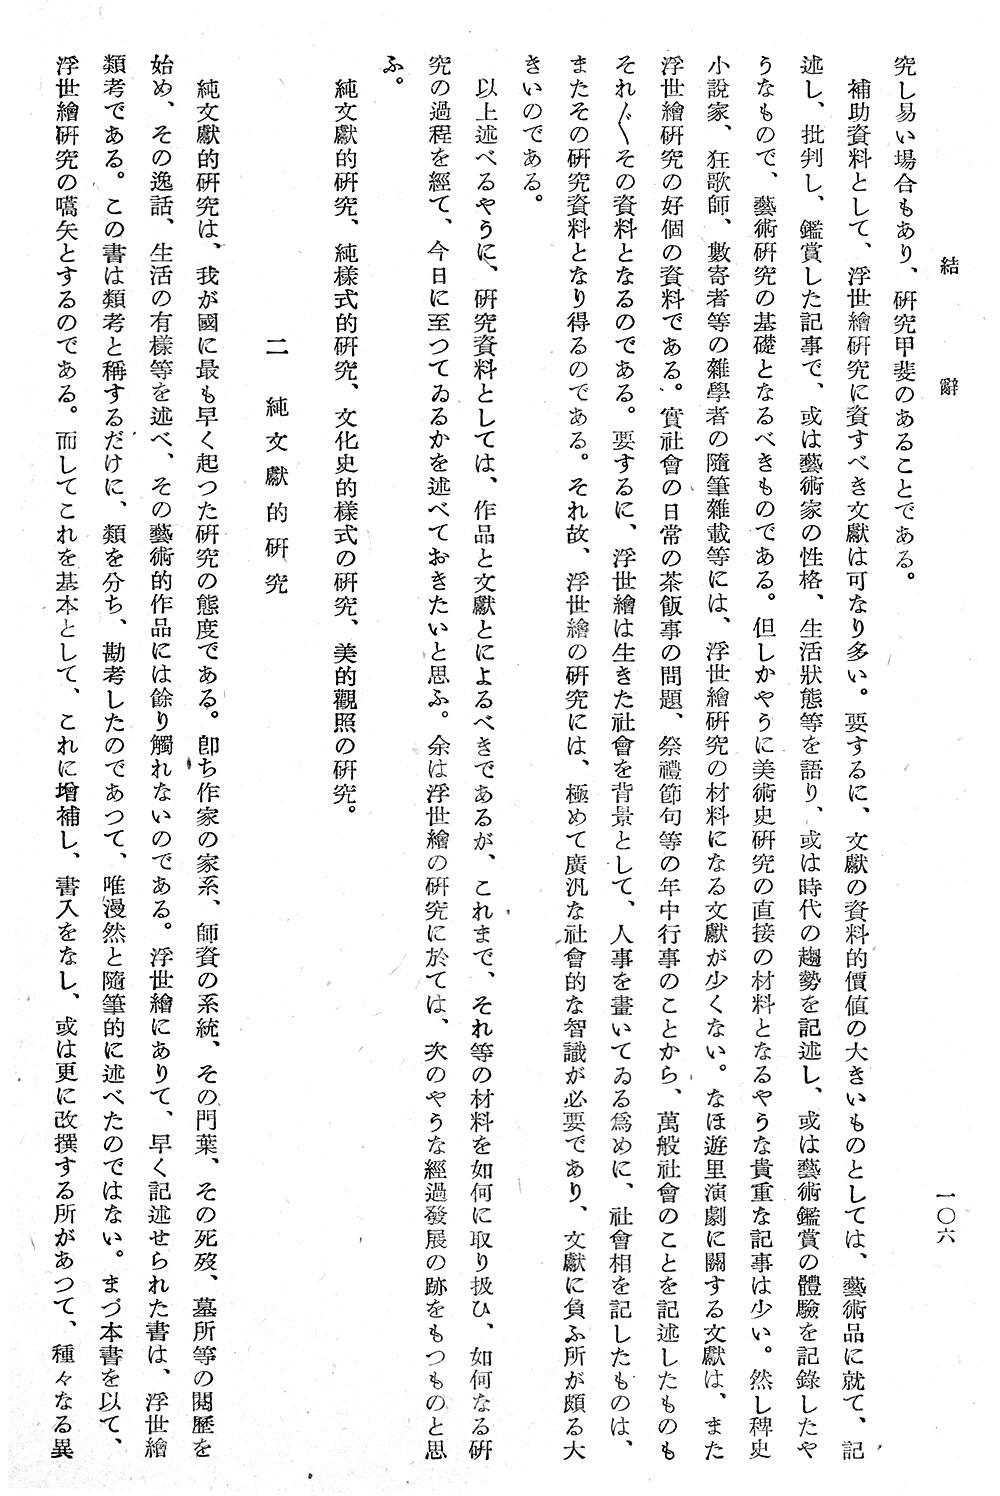 結辭
一〇六
究し易い場合もあり、硏究甲斐のあることである。
補助資料として、浮世繪硏究に資すべき文獻は可なり多い。要するに、文獻の資料的價値の大きいものとしては、藝術品に就て、記
述し、批判し、鑑賞した記事で、或は藝術家の性格、生活狀態等を語り、或は時代の趨勢を記述し、或は藝術鑑賞の體驗を記錄したや
うなもので、藝術硏究の基礎となるべきものである。但しかやうに美術史硏究の直接の材料となるやうな貴重な記事は少い。然し稗史
小說家、狂歌師、數寄者等の雜學者の隨筆雜載等には、浮世繪硏究の材料になる文獻が少くない。なほ遊里演劇に關する文獻は、また
浮世繪硏究の好個の資料である。實社會の日常の茶飯事の問題、祭禮節句等の年中行事のことから、萬般社會のことを記述したものも
それ〴〵その資料となるのである。要するに、浮世繪は生きた社會を背景として、人事を畫いてゐる爲めに、社會相を記したものは、
またその硏究資料となり得るのである。それ故、浮世繪の硏究には、極めて廣汎な社會的な智識が必要であり、文獻に負ふ所が頗る大
きいのである。
以上述べるやうに、硏究資料としては、作品と文獻とによるべきであるが、これまで、それ等の材料を如何に取り扱ひ、如何なる硏
究の過程を經て、今日に至つてゐるかを述べておきたいと思ふ。余は浮世繪の硏究に於ては、次のやうな經過發展の跡をもつものと思
ふ。
純文獻的硏究、純樣式的硏究、文化史的樣式の硏究、美的觀照の硏究。
二 純文獻的硏究
純文獻的硏究は、我が國に最も早く起つた硏究の態度である。卽ち作家の家系、師資の系統、その門葉、その死歿、墓所等の閱歷を
始め、その逸話、生活の有樣等を述べ、その藝術的作品には餘り觸れないのである。浮世繪にありて、早く記述せられた書は、浮世繪
類考である。この書は類考と稱するだけに、類を分ち、勘考したのであつて、唯漫然と隨筆的に述べたのではない。まづ本書を以て、
浮世繪硏究の嚆矢とするのである。而してこれを基本として、これに增補し、書入をなし、或は更に改撰する所があつて、種々なる異